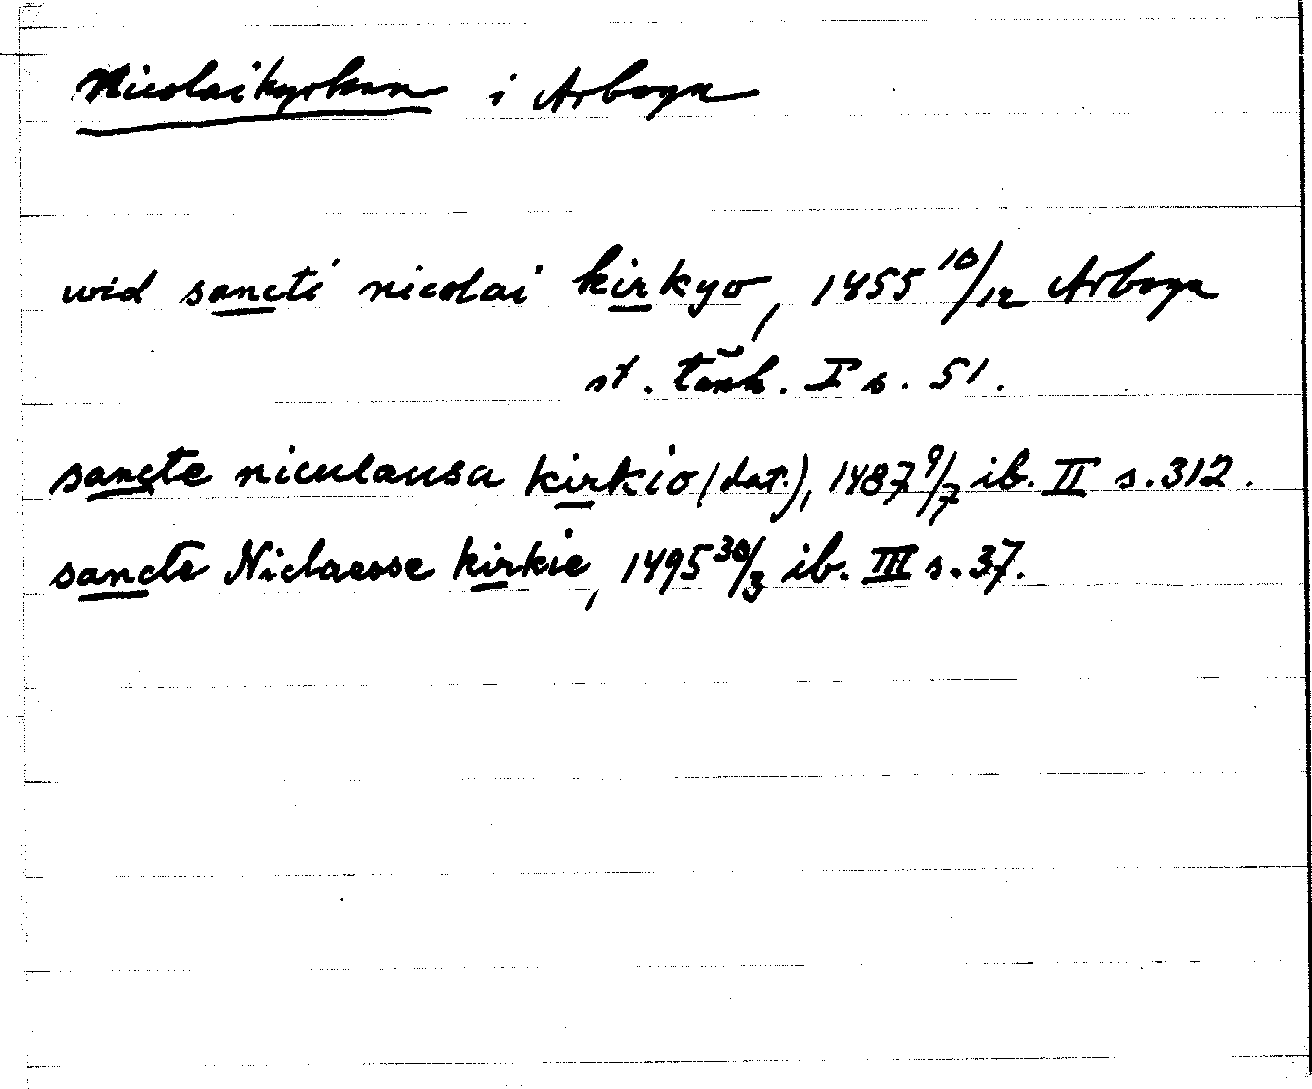 Nicolaikyrkan i Arboga
wid sancti nicolai kirkyo, 1455 10/12 Arboga
st. tänk. I s. 51.
sancte niculausa kirkio (dat.), 1487 9/7 ib. II s. 312.
sancte Niclaesse kirkie, 1495 30/3 ib. III s. 37.